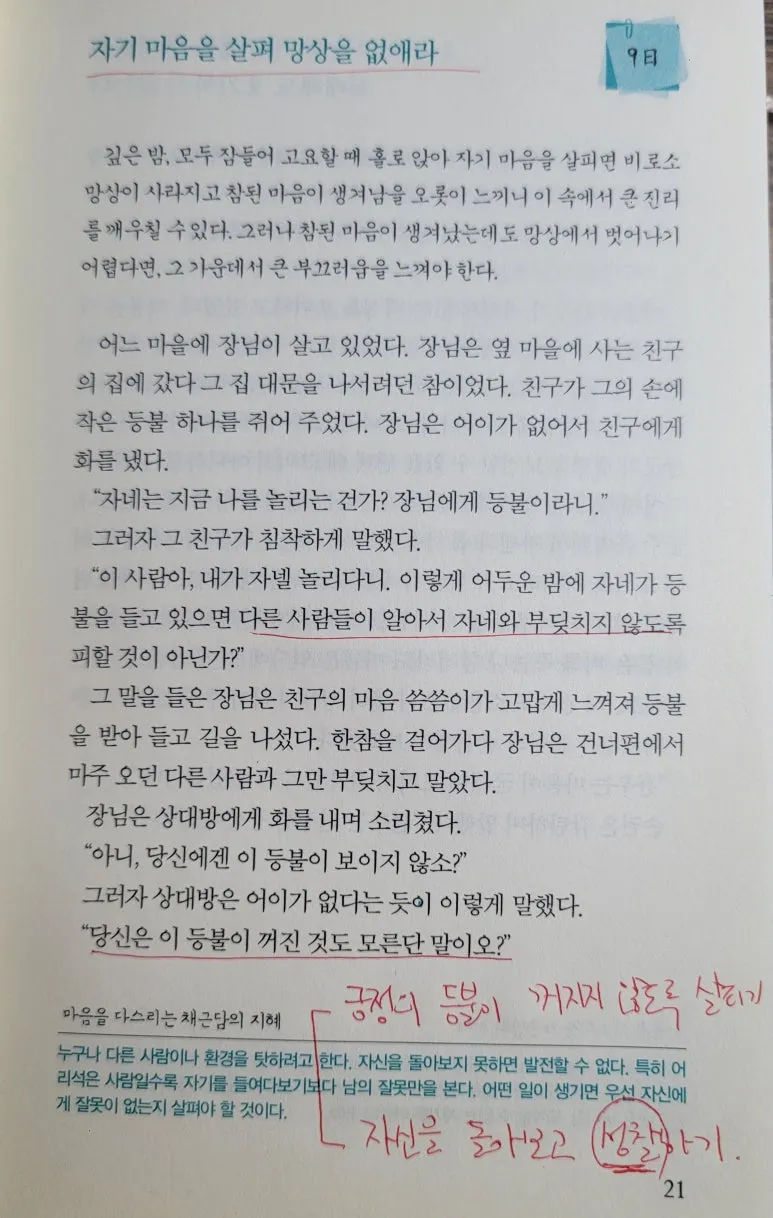 자기 마음을 살펴 망상을 없애라
9日
깊은 밤, 모두 잠들어 고요할 때 홀로 앉아 자기 마음을 살피면 비로소
망상이 사라지고 참된 마음이 생겨남을 오롯이 느끼니 이 속에서 큰 진리
를 깨우칠 수 있다. 그러나 참된 마음이 생겨났는데도 망상에서 벗어나기
어렵다면, 그 가운데서 큰 부끄러움을 느껴야 한다.
어느 마을에 장님이 살고 있었다. 장님은 옆 마을에 사는 친구
의 집에 갔다 그 집 대문을 나서려던 참이었다. 친구가 그의 손에
작은 등불 하나를 쥐어 주었다. 장님은 어이가 없어서 친구에게
화를 냈다.
“자네는 지금 나를 놀리는 건가? 장님에게 등불이라니.”
그러자 그 친구가 침착하게 말했다.
“이 사람아, 내가 자넬 놀리다니. 이렇게 어두운 밤에 자네가 등
불을 들고 있으면 다른 사람들이 알아서 자네와 부딪치지 않도록
피할 것이 아닌가?”
그 말을 들은 장님은 친구의 마음 씀씀이가 고맙게 느껴져 등불
을 받아 들고 길을 나섰다. 한참을 걸어가다 장님은 건너편에서
마주 오던 다른 사람과 그만 부딪치고 말았다.
장님은 상대방에게 화를 내며 소리쳤다.
“아니, 당신에겐 이 등불이 보이지 않소?”
그러자 상대방은 어이가 없다는 듯이 이렇게 말했다.
“당신은 이 등불이 꺼진 것도 모른단 말이오?”
긍정의 등불이 꺼지지 않도록 살피기
마음을 다스리는 채근담의 지혜
누구나 다른 사람이나 환경을 탓하려고 한다. 자신을 돌아보지 못하면 발전할 수 없다. 특히 어
리석은 사람일수록 자기를 들여다보기보다 남의 잘못만을 본다. 어떤 일이 생기면 우선 자신에
게 잘못이 없는지 살펴야 할 것이다.
자신을 돌아보고 성찰하기.
21